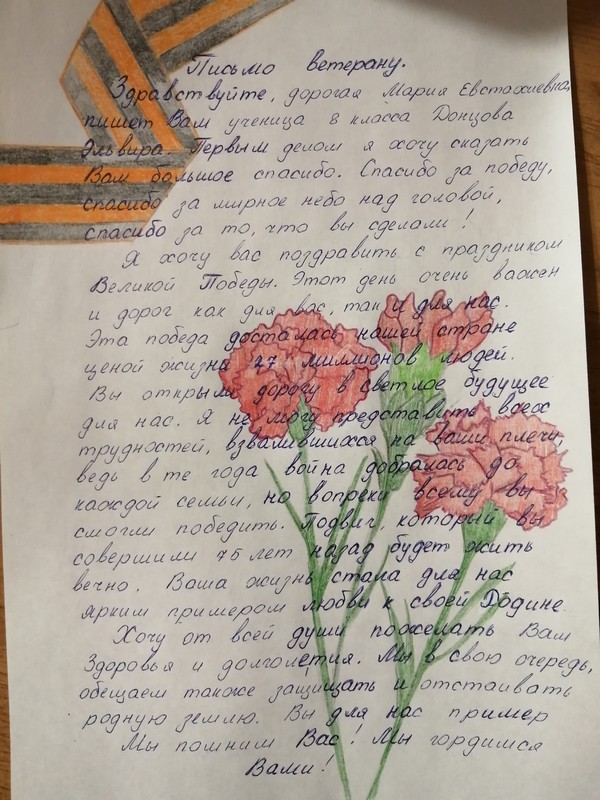 Письмо ветерану.
Здравствуйте, дорогая Мария Евстахиевна,
пишет Вам ученица 8 класса Донцова
Эльвира. Первым делом я хочу сказать
Вам большое спасибо. Спасибо за победу,
спасибо за мирное небо над головой,
спасибо за то, что вы сделали!
Я хочу вас поздравить с праздником
Великой Победы. Этот день очень важен
и дорог как для вас, так и для нас.
Эта победа досталась нашей стране
ценой жизни 27 миллионов людей.
Вы открыли дорогу в светлое будущее
для нас. Я не могу представить всех
трудностей, взвалившихся на ваши плечи,
ведь в те года война добралась до
каждой семьи, но вопреки всему вы
смогли победить. Подвиг, который вы
совершили 75 лет назад будет жить
вечно. Ваша жизнь стала для нас
ярким примером любви к своей Родине.
Хочу от всей души пожелать Вам
Здоровья и долголетия. Мы в свою очередь,
обещаем также защищать и отстаивать
родную землю. Вы для нас пример
Мы помним Вас! Мы гордимся
Вами!